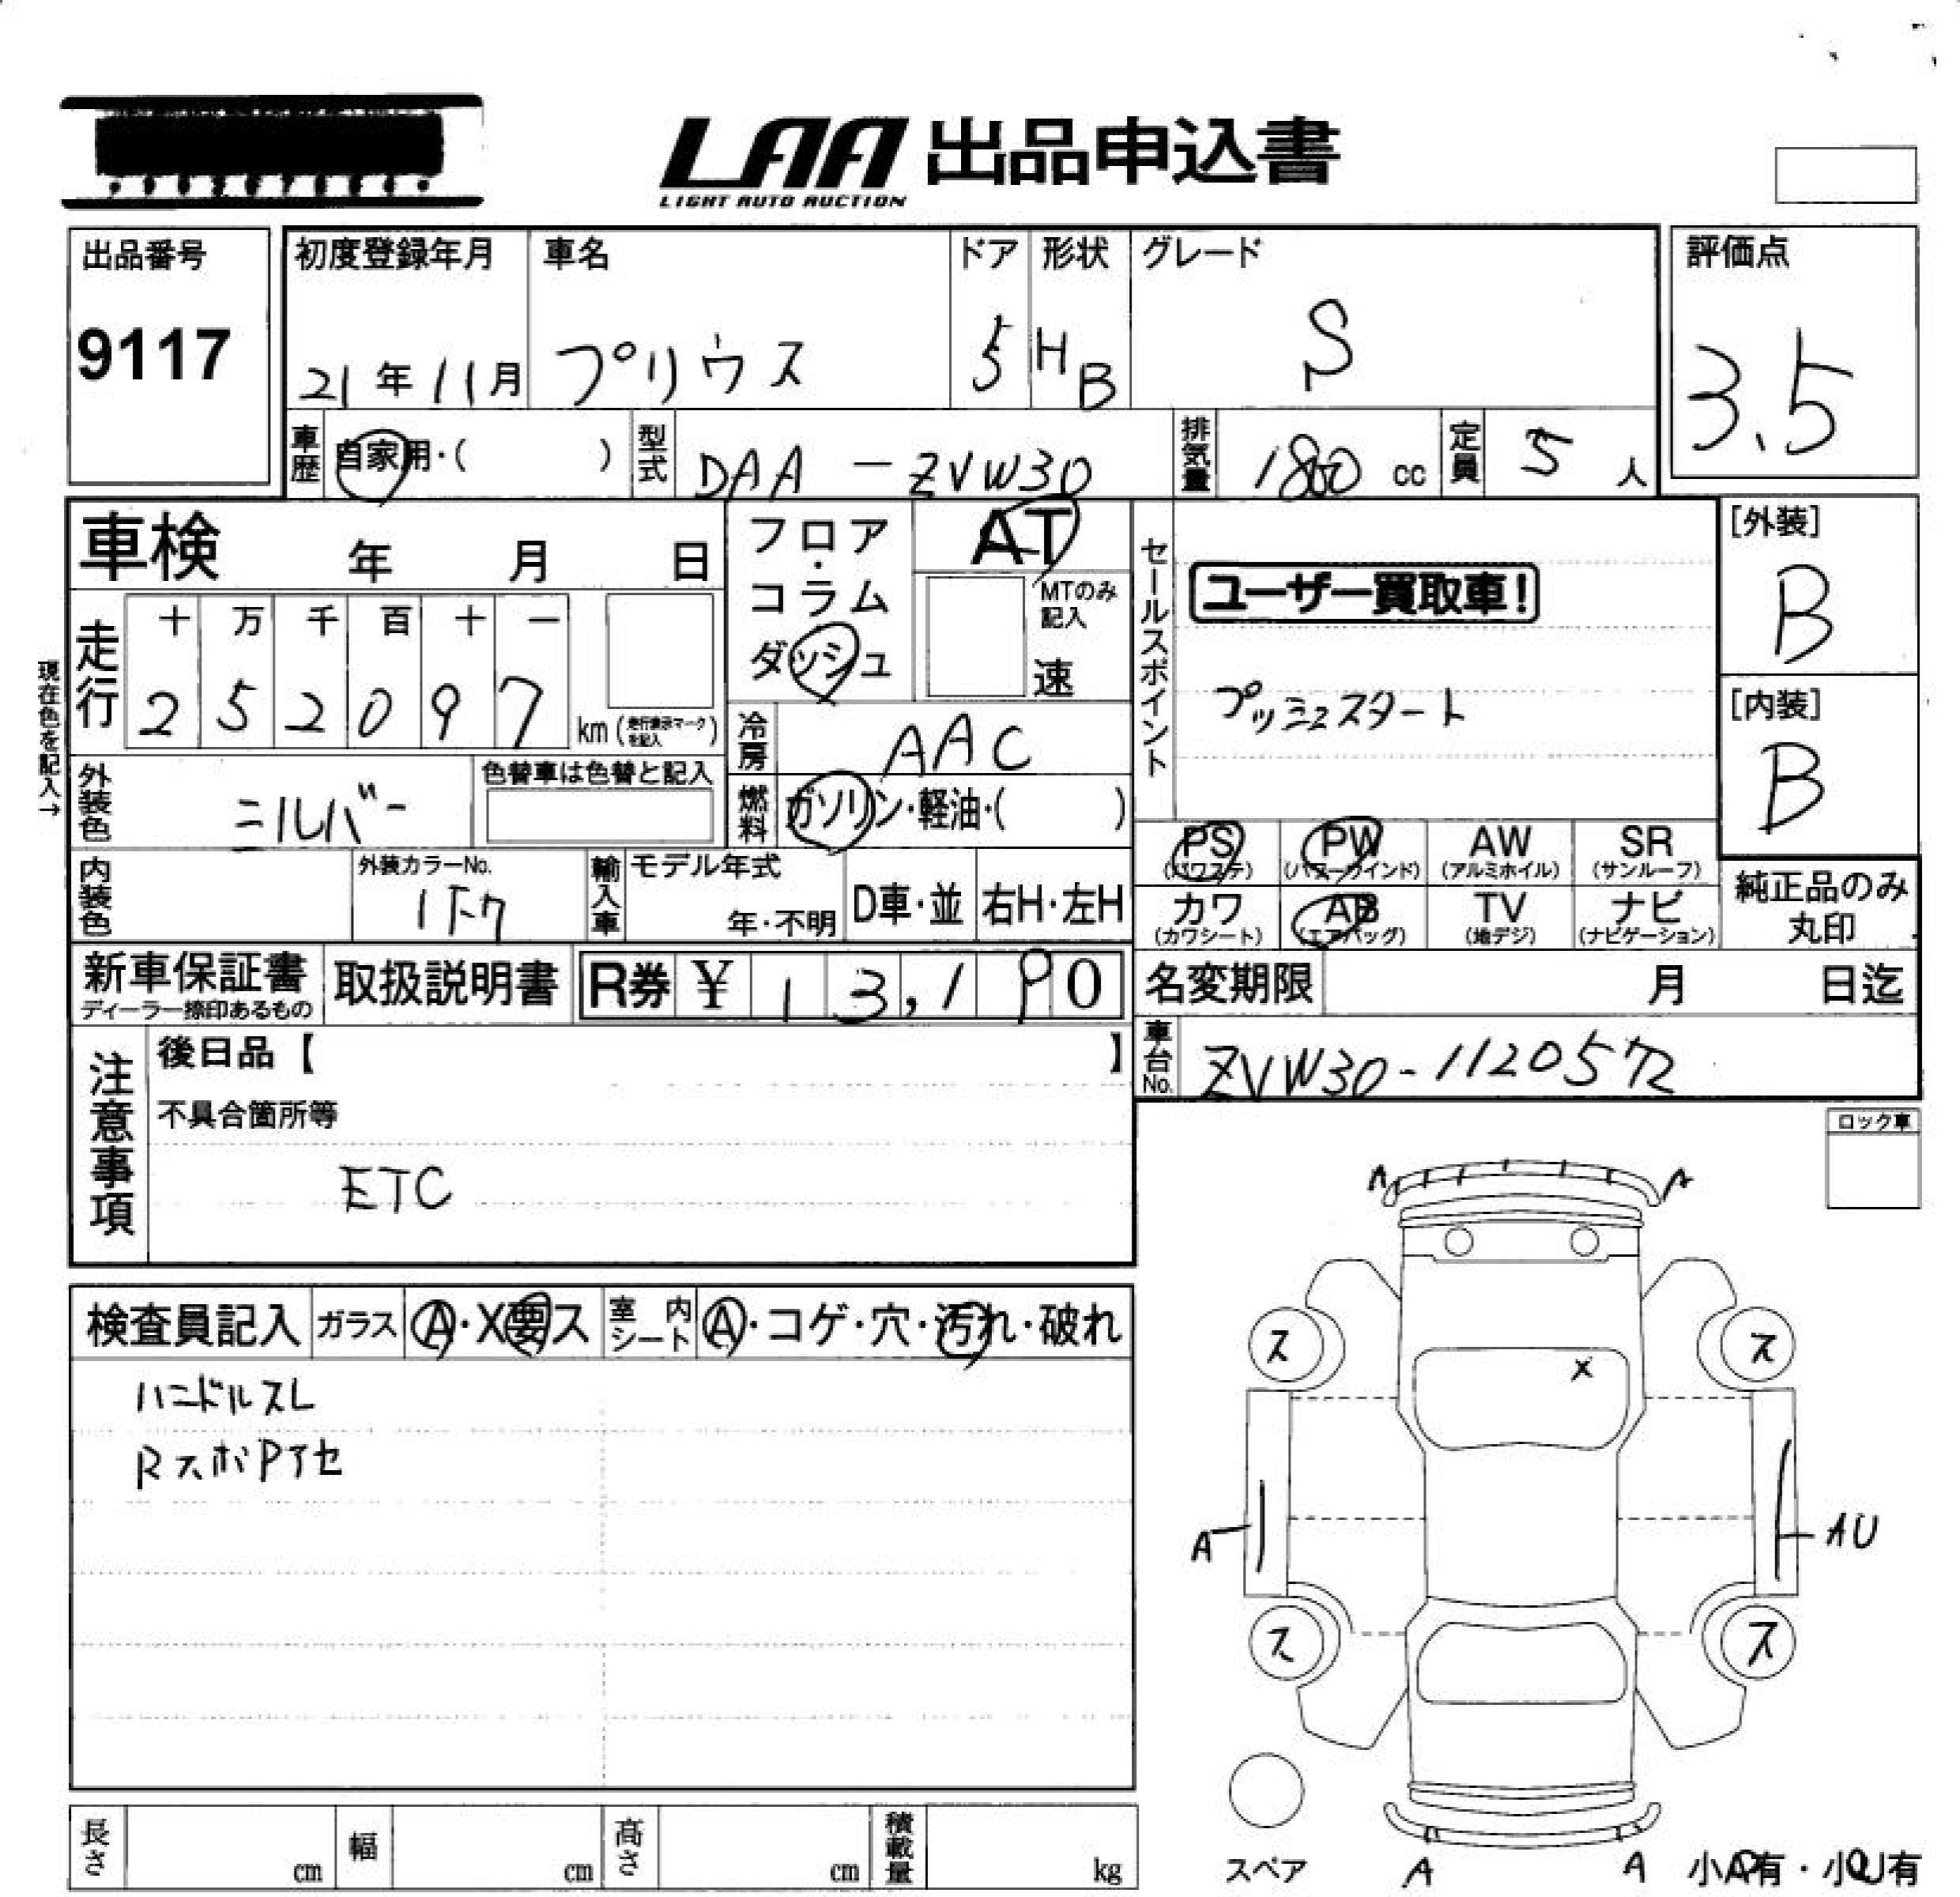 LAA 出品申込書
LIGHT AUTO AUCTION
出品番号 初度登録年月 車名 ドア 形状 グレード 評価点
9117 21年11月 プリウス 5 HB S 3.5
車歴 自家用・( ) 型式 DAA-ZVW30 排気量 1800 cc 定員 5 人
車検 年 月 日 フロア・コラム ダッシュ AT MTのみ記入 速
セールスポイント
ユーザー買取車!
プッシュスタート
[外装]
B
[内装]
B
現在色を記入→
走行 十 万 千 百 十 一
2 5 2 0 9 7 km (走行表示マークを記入)
冷房 AAC
外装色 シルバー 色替車は色替と記入
燃料 ガソリン・軽油・( )
PS (パワステ) PW (パワーウインド) AW (アルミホイル) SR (サンルーフ)
カワ (カワシート) AB (エアバッグ) TV (地デジ) ナビ (ナビゲーション)
純正品のみ
丸印
内装色 外装カラーNo. 1F7 輸入車 モデル年式 年・不明 D車・並 右H・左H
新車保証書 取扱説明書 R券 ¥ 13,190
ディーラー捺印あるもの
名変期限 月 日迄
車台No. ZVW30-1120572
注意事項
後日品【 】
不具合箇所等
ETC
ロック車
検査員記入 ガラス A・X要ス 室内シート A・コゲ・穴・汚れ・破れ
ハンドルスレ
RスポPイセ
A A
ス ス
X
A AU
ス ス
スペア A A 小A有・小U有
長さ cm 幅 cm 高さ cm 積載量 kg